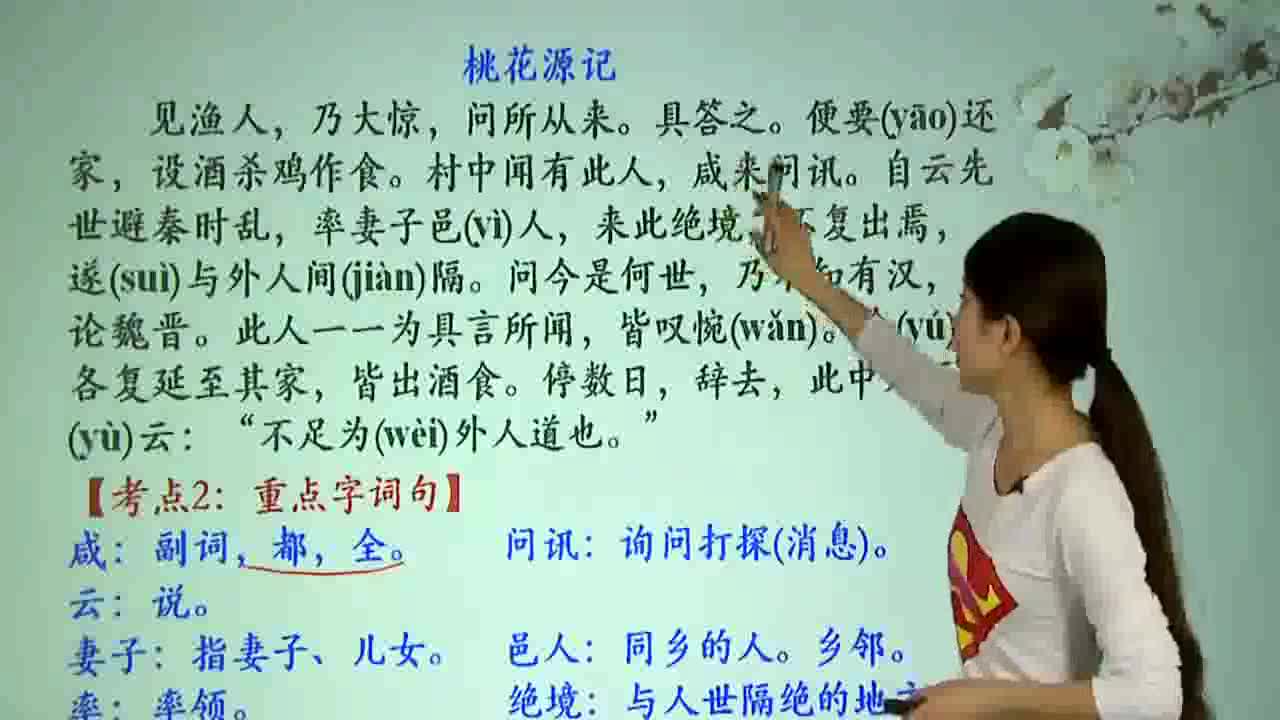 桃花源记
见渔人，乃大惊，问所从来。具答之。便要(yāo)还
家，设酒杀鸡作食。村中闻有此人，咸来问讯。自云先
世避秦时乱，率妻子邑(yì)人，来此绝境，不复出焉，
遂(suì)与外人间(jiàn)隔。问今是何世，乃不知有汉，
论魏晋。此人一一为具言所闻，皆叹惋(wǎn)。(yú)
各复延至其家，皆出酒食。停数日，辞去，此中
(yù)云：“不足为(wèi)外人道也。”
【考点2：重点字词句】
咸：副词，都，全。 问讯：询问打探(消息)。
云：说。
妻子：指妻子、儿女。 邑人：同乡的人。乡邻。
率：率领。 绝境：与人世隔绝的地